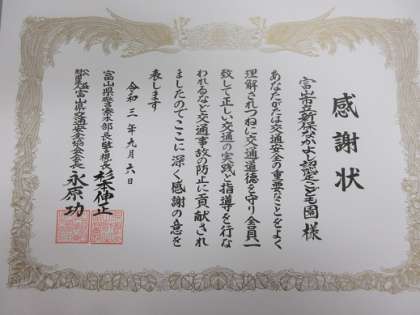 感謝状
富山市立新保なかよし認定こども園 様
あなたがたは交通安全の重要なことをよく
理解されつねに交通道徳を守り全員一
致して正しい交通の実践と指導を行な
われるなど交通事故の防止に貢献され
ましたのでここに深く感謝の意を
表します
令和三年九月六日
富山県警察本部長警視長 杉本伸正
富山県交通安全協会会長 永原功